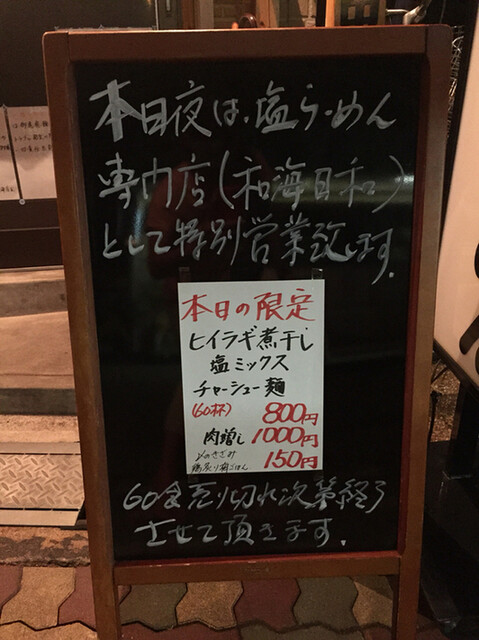 本日夜は、塩らーめん
専門店(和海日和)
として特別営業致します。
本日の限定
ヒイラギ煮干し
塩ミックス
チャーシュー麺
(60杯) 800円
肉増し 1000円
150円
60食売り切れ次第終了
させて頂きます。